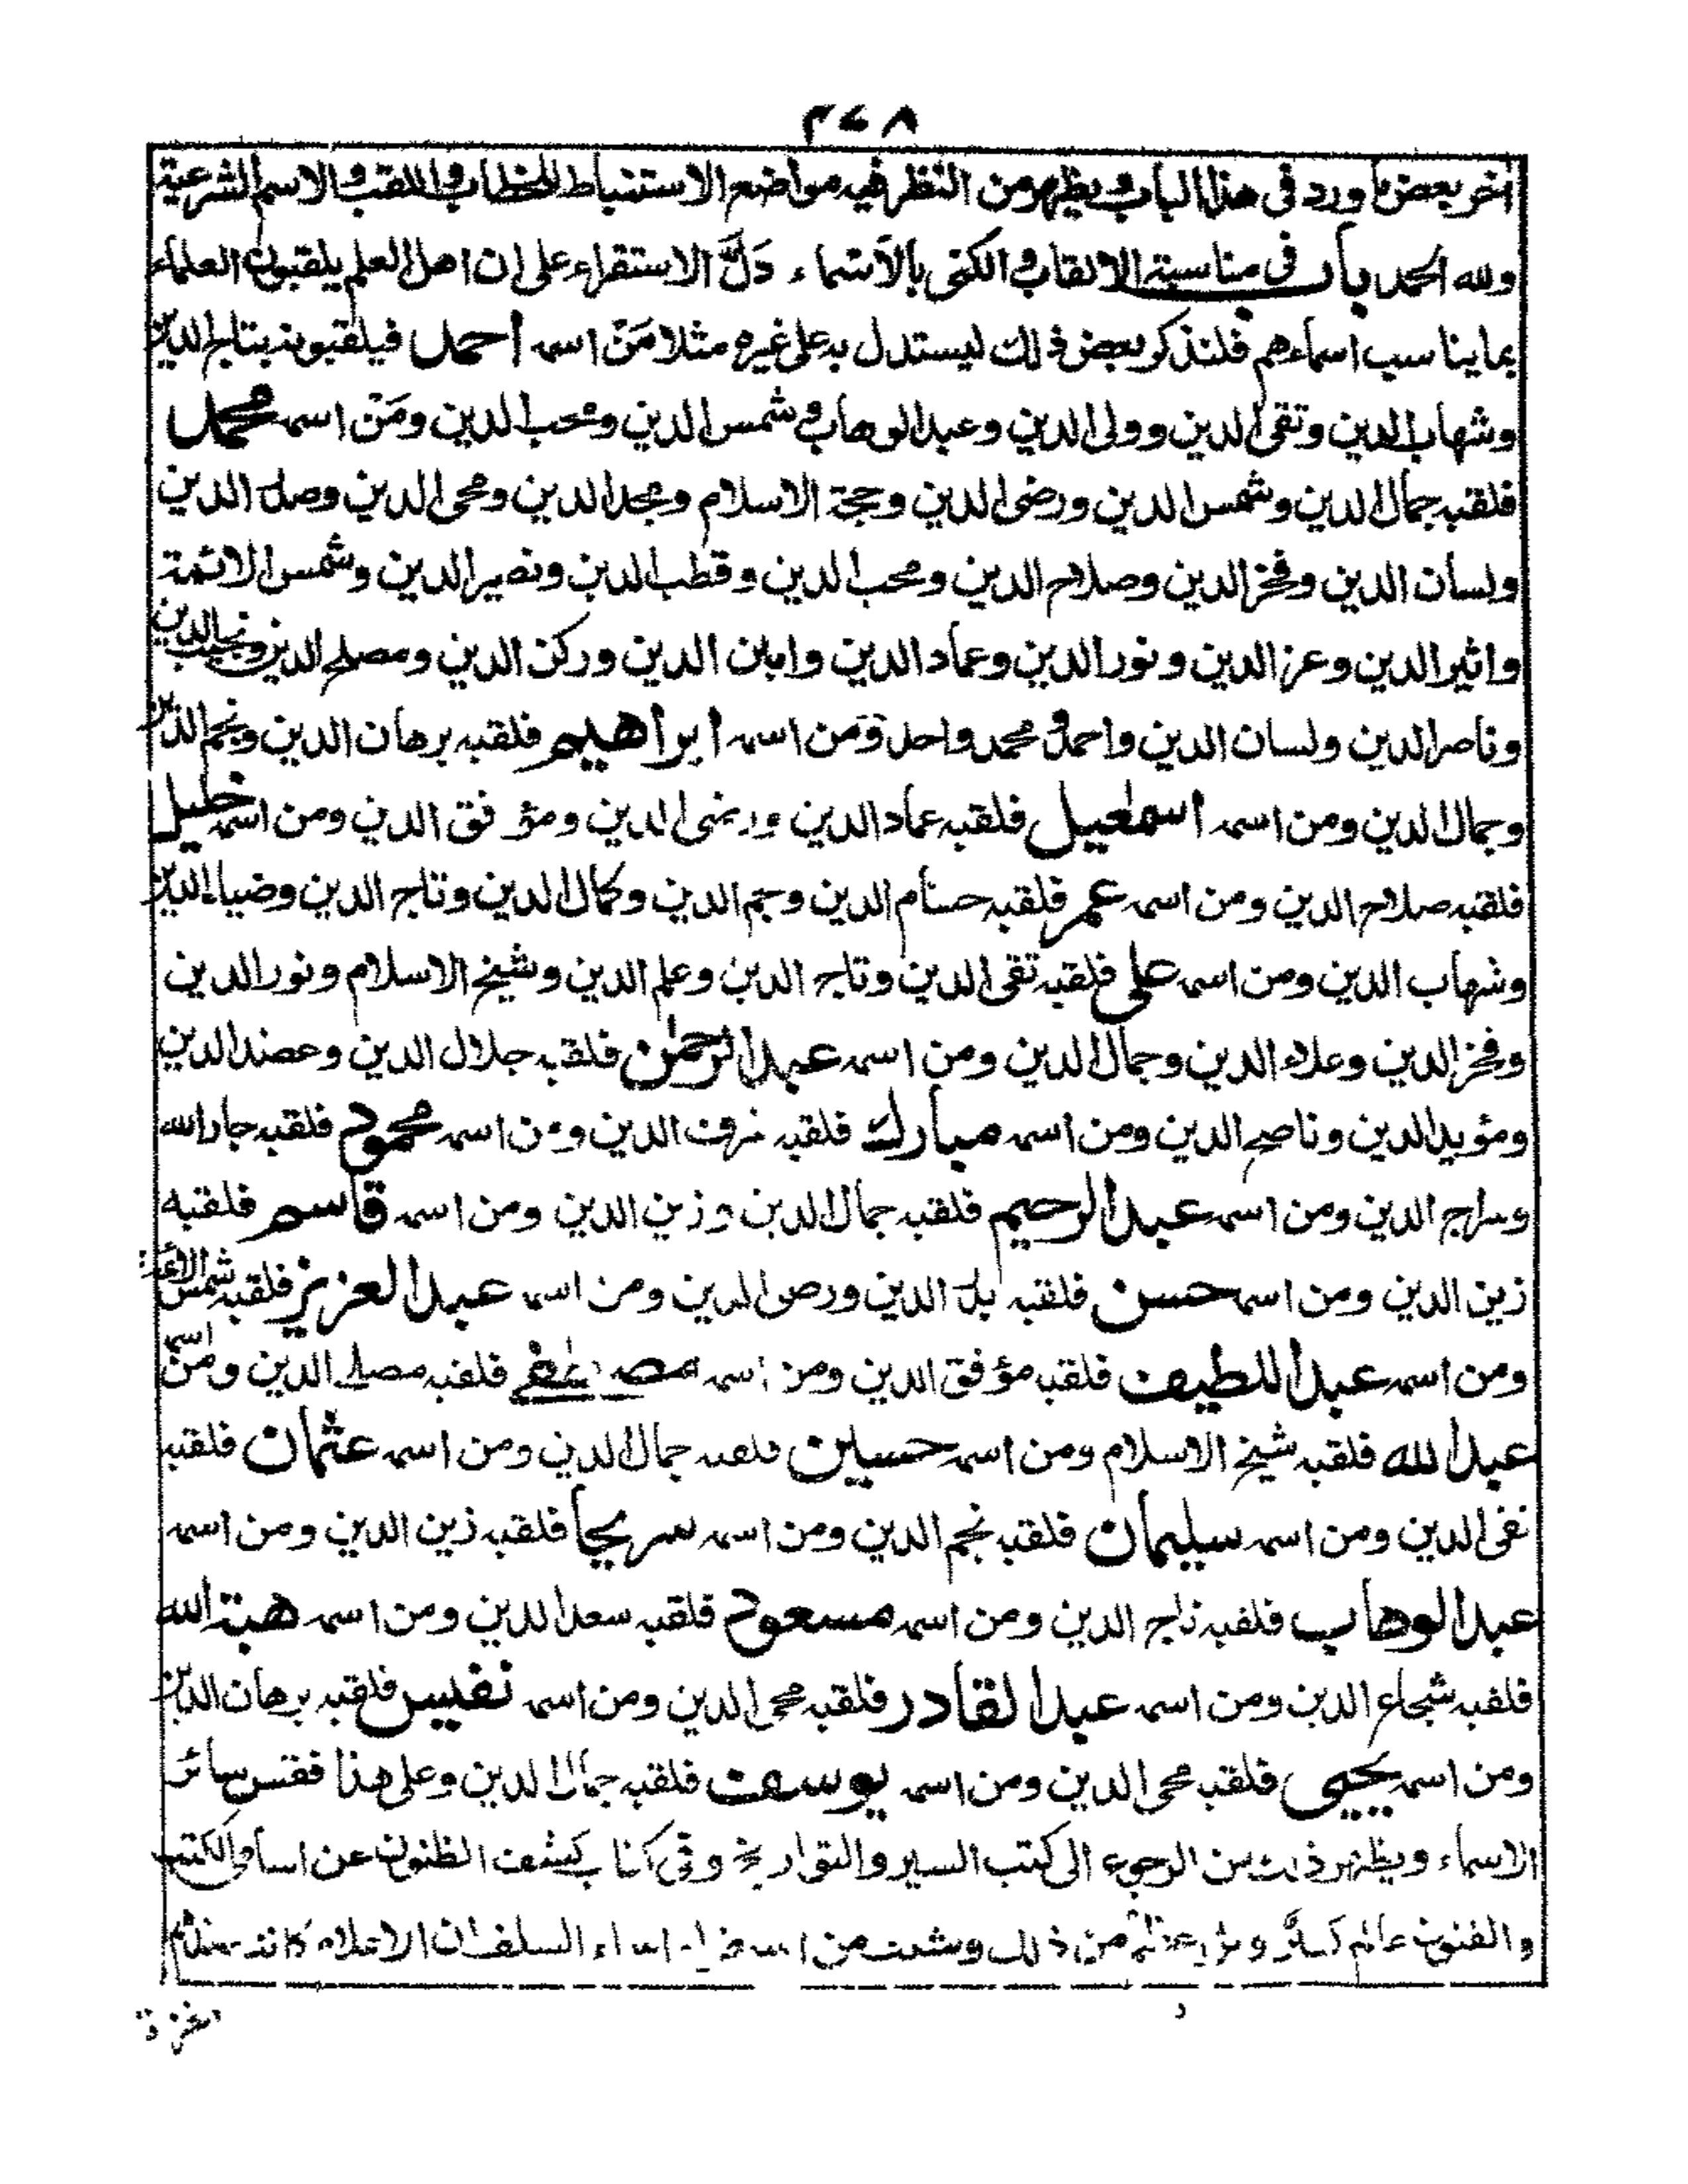 ٢٧٨
آخر بعض ما ورد في هذا الباب ويظهر من النظر فيه مواضع الاستنباط للخطاب واللقب والاسم الشرعية
ولله الحمد باب في مناسبة الالقاب والكنى بالأسماء دَلَّ الاستقراء على ان اهل العلم يلقبون العلماء
بما يناسب اسماءهم فلنذكر بعض ذلك ليستدل به على غيره مثلا مَنْ اسمه أحمد فيلقبونه بتاج الدين
وشهاب الدين وتقي الدين وولي الدين وعبد الوهاب وشمس الدين ومحب الدين ومَنْ اسمه محمد
فلقبه جمال الدين وشمس الدين ورضى الدين وحجة الاسلام ومجد الدين ومحى الدين وصدر الدين
ولسان الدين وفخر الدين وصلاح الدين ومحب الدين وقطب الدين ونصير الدين وشمس الائمة
واثير الدين وعز الدين ونور الدين وعماد الدين وامين الدين وركن الدين ومصلح الدين ونجيب الدين
وناصر الدين ولسان الدين واحمد ومحمد واحد ومن اسمه ابراهيم فلقبه برهان الدين ونجم الدين
وجمال الدين ومن اسمه اسمعيل فلقبه عماد الدين ورضى الدين وموفق الدين ومن اسمه خليل
فلقبه صلاح الدين ومن اسمه عمر فلقبه حسام الدين ونجم الدين وكمال الدين وتاج الدين وضياء الدين
وشهاب الدين ومن اسمه علي فلقبه تقى الدين وتاج الدين وعلم الدين وشيخ الاسلام ونور الدين
وفخر الدين وعلاء الدين وجمال الدين ومن اسمه عبد الرحمن فلقبه جلال الدين وعضد الدين
ومؤيد الدين وناصح الدين ومن اسمه مبارك فلقبه شرف الدين ومن اسمه محمود فلقبه جار الله
وسراج الدين ومن اسمه عبد الرحيم فلقبه جمال الدين وزين الدين ومن اسمه قاسم فلقبه
زين الدين ومن اسمه حسن فلقبه بدر الدين ورضى الدين ومن اسمه عبد العزيز فلقبه شمس الائمة
ومن اسمه عبد اللطيف فلقبه مؤفق الدين ومن اسمه مصطفى فلقبه مصلح الدين ومن اسمه
عبد الله فلقبه شيخ الاسلام ومن اسمه حسين فلقبه جمال الدين ومن اسمه عثمان فلقبه
تقى الدين ومن اسمه سليمان فلقبه نجم الدين ومن اسمه سريجا فلقبه زين الدين ومن اسمه
عبد الوهاب فلقبه تاج الدين ومن اسمه مسعود فلقبه سعد الدين ومن اسمه هبة الله
فلقبه شجاع الدين ومن اسمه عبد القادر فلقبه محى الدين ومن اسمه نفيس فلقبه برهان الدين
ومن اسمه يحيى فلقبه محى الدين ومن اسمه يوسف فلقبه جمال الدين وعلى هذا فقس سائر
الاسماء ويظهر ذلك من الرجوع الى كتب السير والتواريخ وفي كتاب كشف الظنون عن اسامي الكتب
والفنون من ذلك من اسماء السلف ان الاعلام كانت عندهم